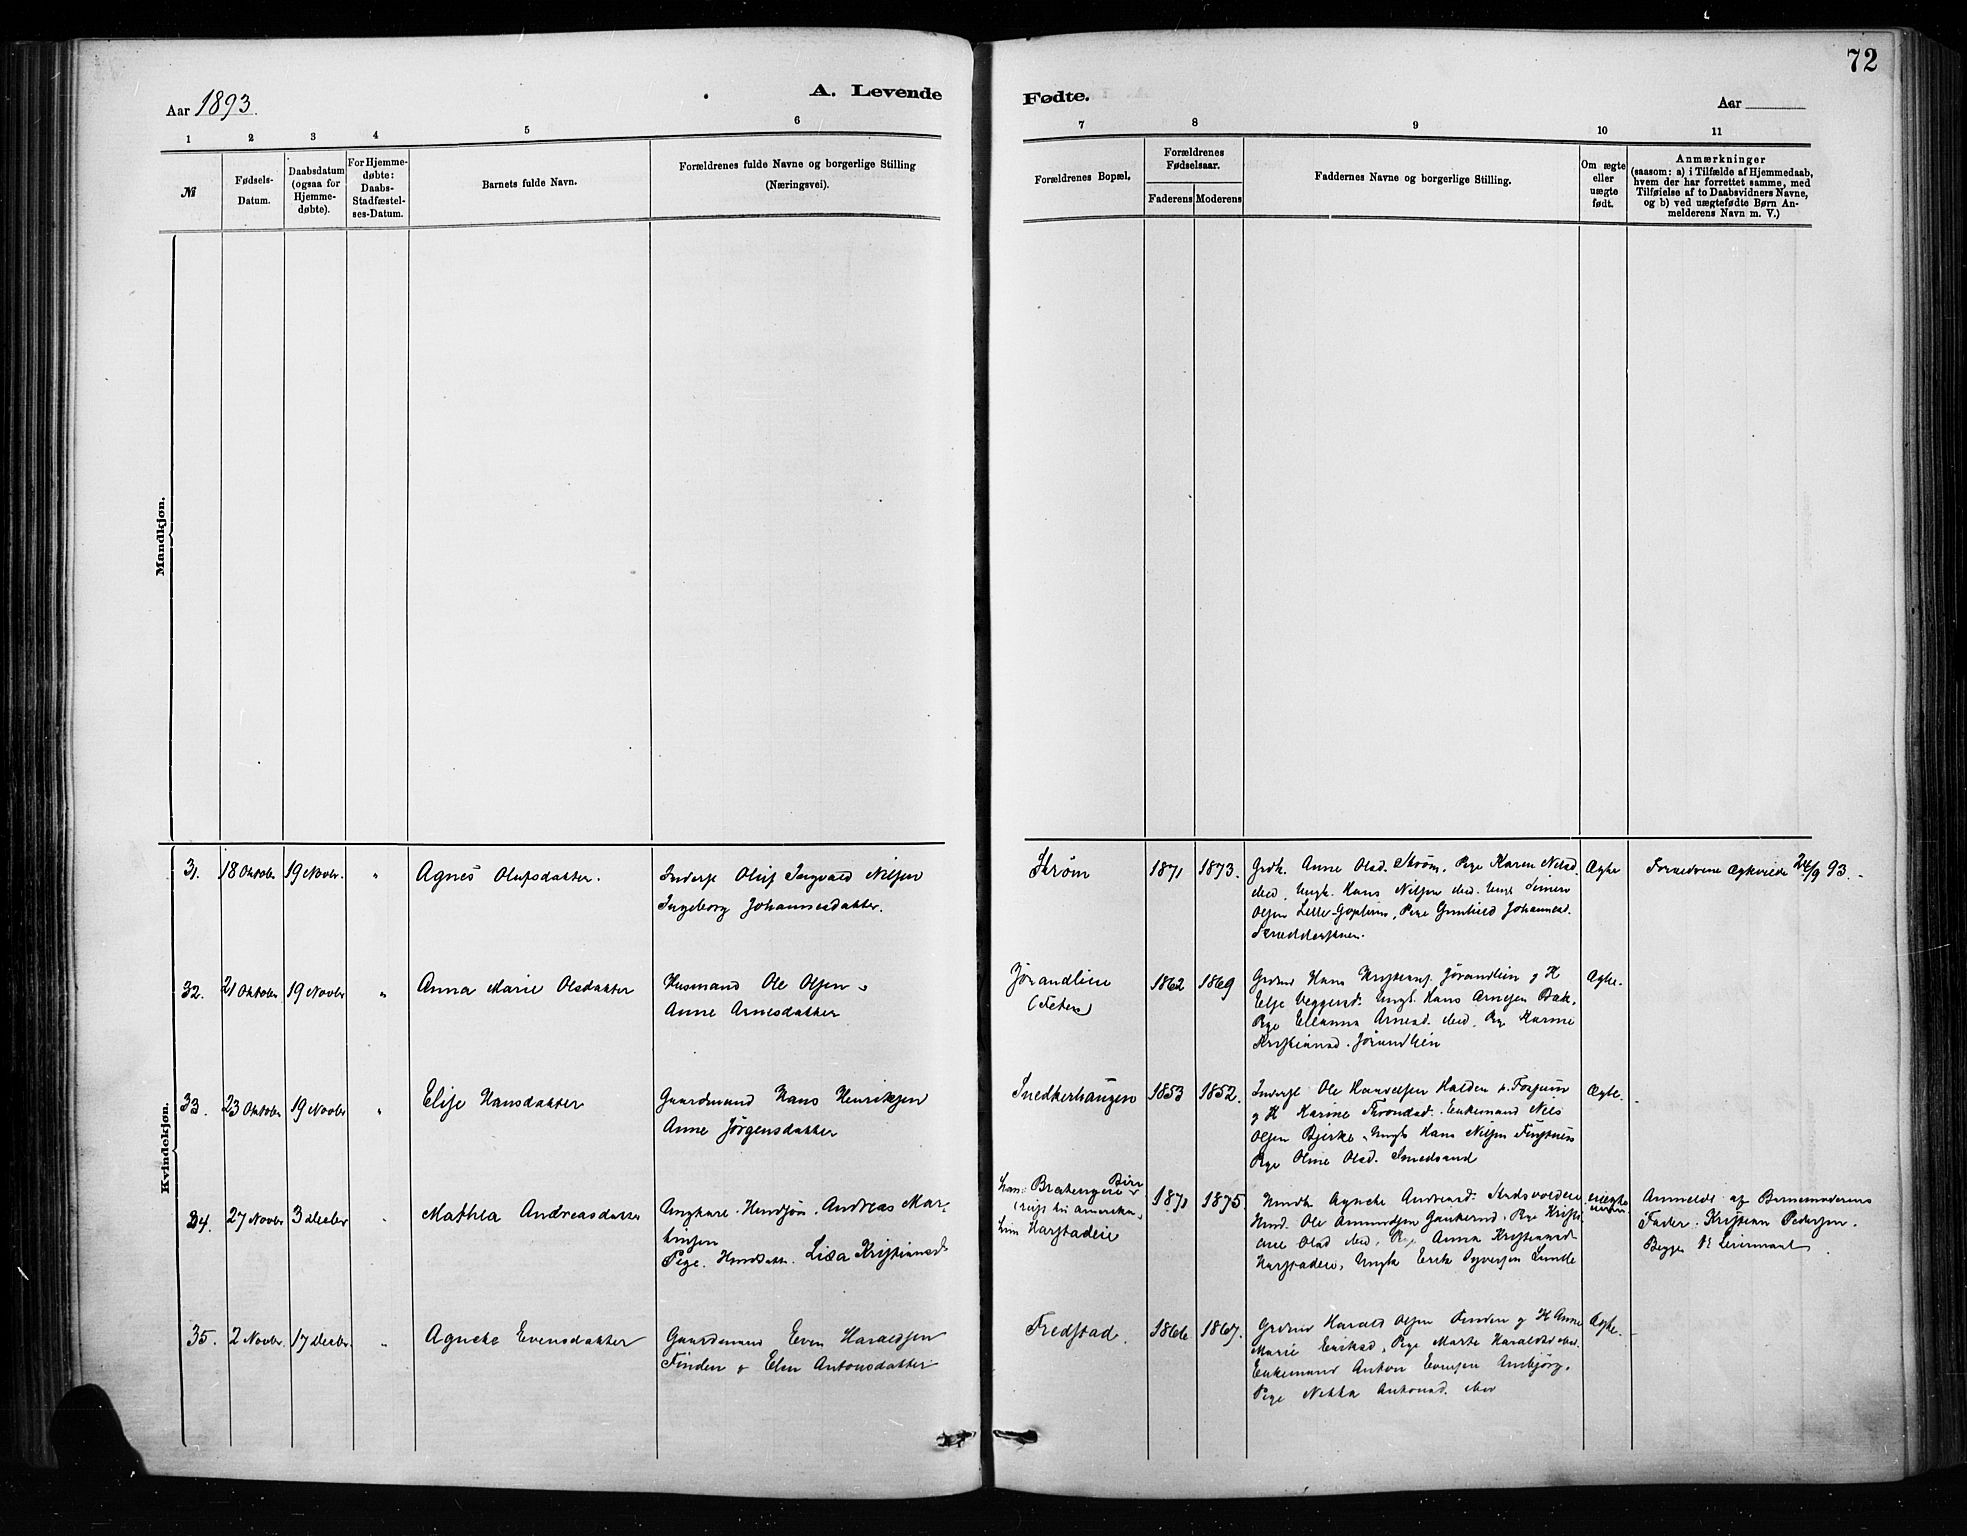 72
Aar 1893.
A. Levende
Fødte.
Aar
1 2 3 4 5 6
7 8 9 10 11
№
Fødsels-
Datum.
Daabsdatum
(ogsaa for
Hjemme-
døbte).
For Hjemme-
døbte:
Daabs-
Stadfæstel-
ses-Datum.
Barnets fulde Navn.
Forældrenes fulde Navne og borgerlige Stilling
(Næringsvei).
Forældrenes Bopæl,
Forældrenes
Fødselsaar.
Faderens Moderens
Faddernes Navne og borgerlige Stilling.
Om ægte
eller
uægte
født.
Anmærkninger
(saasom: a) i Tilfælde af Hjemmedaab,
hvem der har forrettet samme, med
Tilføielse af to Daabsvidners Navne,
og b) ved uægtefødte Børn An-
melderens Navn m. V.)
Mandkjøn.
Kvindekjøn.
31. 18 Oktober 19 Novbr. " Agnes Olufsdatter.
Inderst Oluf Ingvald Nilsen
Ingeborg Johannesdatter.
Strøm 1871 1873.
Anne Olsd. Strøm, Pige Karen Nilsd.
ibid, Ungk. Hans Nilsen ibid. Ungk Simen
Olsen Lille-Gopleren, Pige Gunhild Johannesd.
Ægte
Forældrene Ægteviede 24/9 93.
32. 21 Oktober 19 Novbr " Anna Marie Olsdatter
Husmand Ole Olsen
Anne Arnesdatter
Jørandlien 1862 1869
Grdmd Hans Jørandlien g H
Ungk. Hans Arnesen
Pige Arnesd. ibid, Pig Karine
Kristiansd. Jørandlien
Ægte.
33. 23 Oktober 19 Novbr " Elise Hansdatter
Gaardmand Hans Henriksen
Anne Jørgensdatter
Snedkerhaugen 1853 1852.
Inderst Ole Halden
g H Karine Throndsd. Enkemand Nils
Olsen Bjerke, Ungk Hans Nilsen
Pige Oline Olsd. Smedsrud
Ægte.
34. 27 Novbr 3 Decbr " Mathea Andreasdatter
Ungkarl. Andreas Mar-
tinsen
Pige. Lisa Kristiansd.
ham: Bratengeie Biri
(reist til Amerika)
hun Harstadeie
1871 1875.
Agnete Andreasd.
Ole Amundsen Gaukerud, Pige Kristi-
ane Olsd ibid, Pige Anna Kristiansd
Harstadeie, Ungk Erik Syversen Lunde
uægte
Anmeldt af Barnemoderens
Fader. Kristian Pedersen.
Begges 1ste Leiermaal.
35. 2 Novbr. 17 Decbr. " Agnete Evensdatter
Gaardmand Even Haraldsen
Finden & Elen Antonsdatter
Fredstad. 1866 1867.
Grdmd Harald Olsen Finden g H Anne
Marie Eriksd, Pige Marte Haraldsd ibid.
Enkemand Anton Evensen
Pige Antonsd. ibid
Ægte.